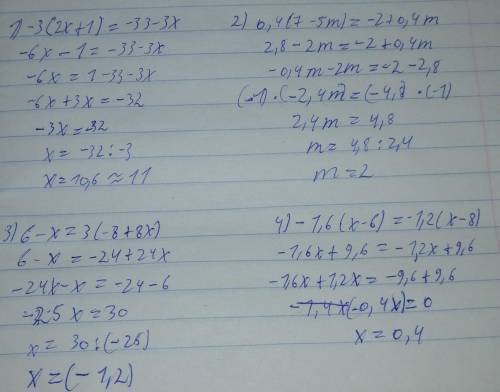 1) -3(2x+1) = -33-3x
-6x-1 = -33-3x
-6x = 1-33-3x
-6x+3x = -32
-3x = -32
x = -32:-3
x = 10,6 ≈ 11
2) 0,4(7-5m) = -2+0,4m
2,8-2m = -2+0,4m
-0,4m-2m = -2-2,8
(-1)·(-2,4m) = (-4,8)·(-1)
2,4m = 4,8
m = 4,8:2,4
m = 2
3) 6-x = 3(-8+8x)
6-x = -24+24x
-24x-x = -24-6
-25x = 30
x = 30:(-25)
x = (-1,2)
4) -1,6(x-6) = -1,2(x-8)
-1,6x+9,6 = -1,2x+9,6
-1,6x+1,2x = -9,6+9,6
(-0,4x) = 0
x = 0,4